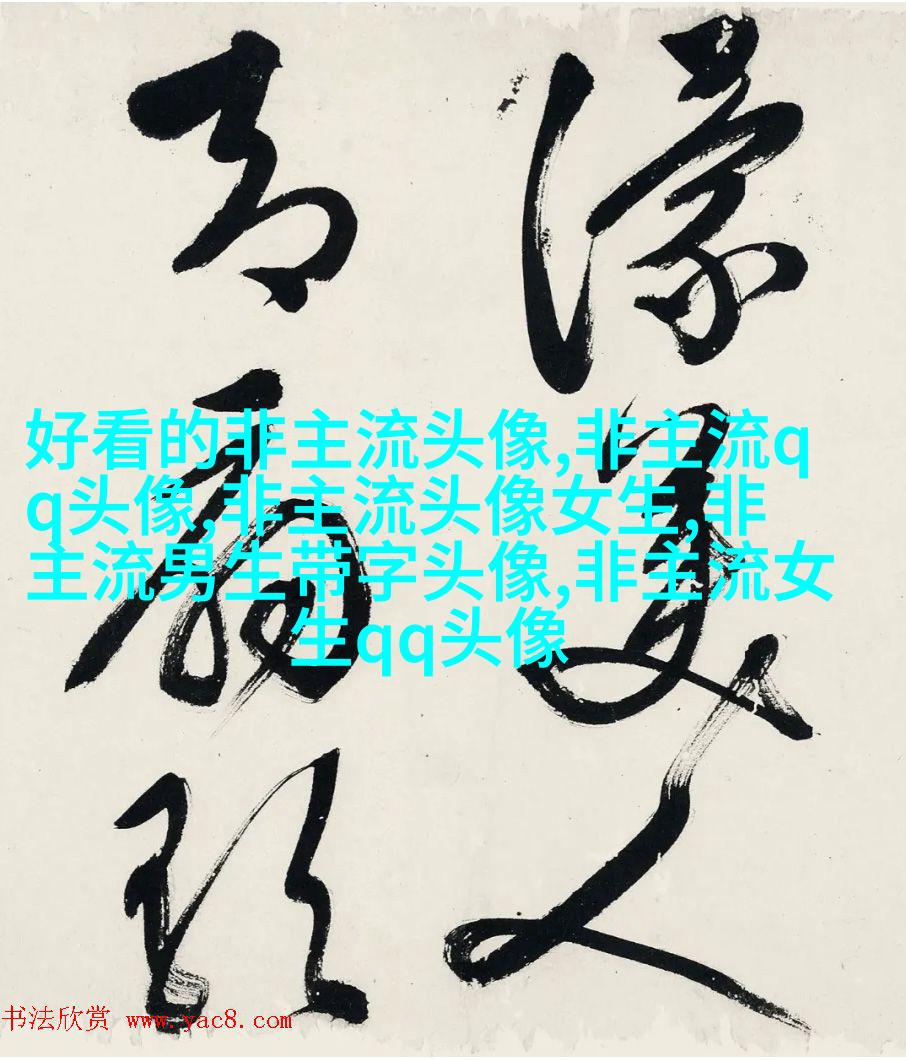 濠美人
好看的非主流头像,非主流q
q头像,非主流头像女生,非
主流男生带字头像,非主流女
生qq头像
书法欣赏 www.yac8.com